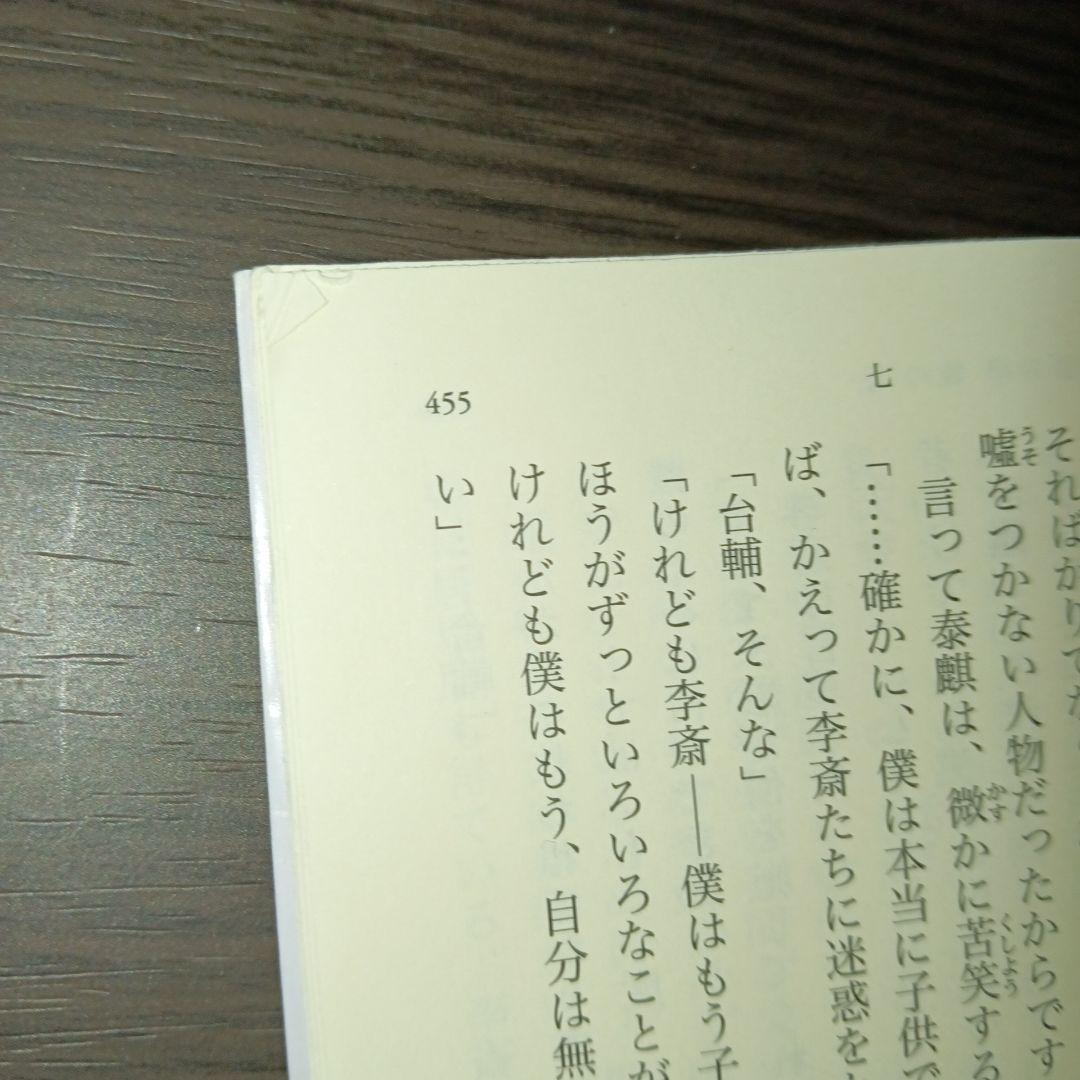 そればかりでな
嘘をつかない人物だったからです
うそ
言って泰麒は、微かに苦笑する
かす
くしょう
「……確かに、僕は本当に子供で
ば、かえって李斎たちに迷惑を
「台輔、そんな」
「けれども李斎――僕はもう子
ほうがずっといろいろなことが
けれども僕はもう、自分は無
い」
七
455